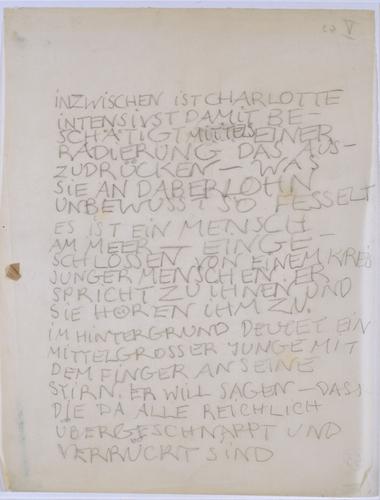 INZWISCHEN IST CHARLOTTE
INTENSIVST DAMIT BE-
SCHÄTIGT MITTELS EINER
RADIERUNG DAS AUS-
ZUDRÜCKEN – WAS
SIE AN DABERLOHN
UNBEWUSST SO FESSELT
ES IST EIN MENSCH
AM MEER – EINGE-
SCHLOSSEN VON EINEM KREIS
JUNGER MENSCHEN. ER
SPRICHT ZU IHNEN UND
SIE HÖREN IHM ZU.
IM HINTERGRUND DEUTET EIN
MITTELGROSSER JUNGE MIT
DEM FINGER AN SEINE
STIRN. ER WILL SAGEN – DASS
DIE DA ALLE REICHLICH
ÜBERGESCHNAPPT UND
VERRÜCKT SIND